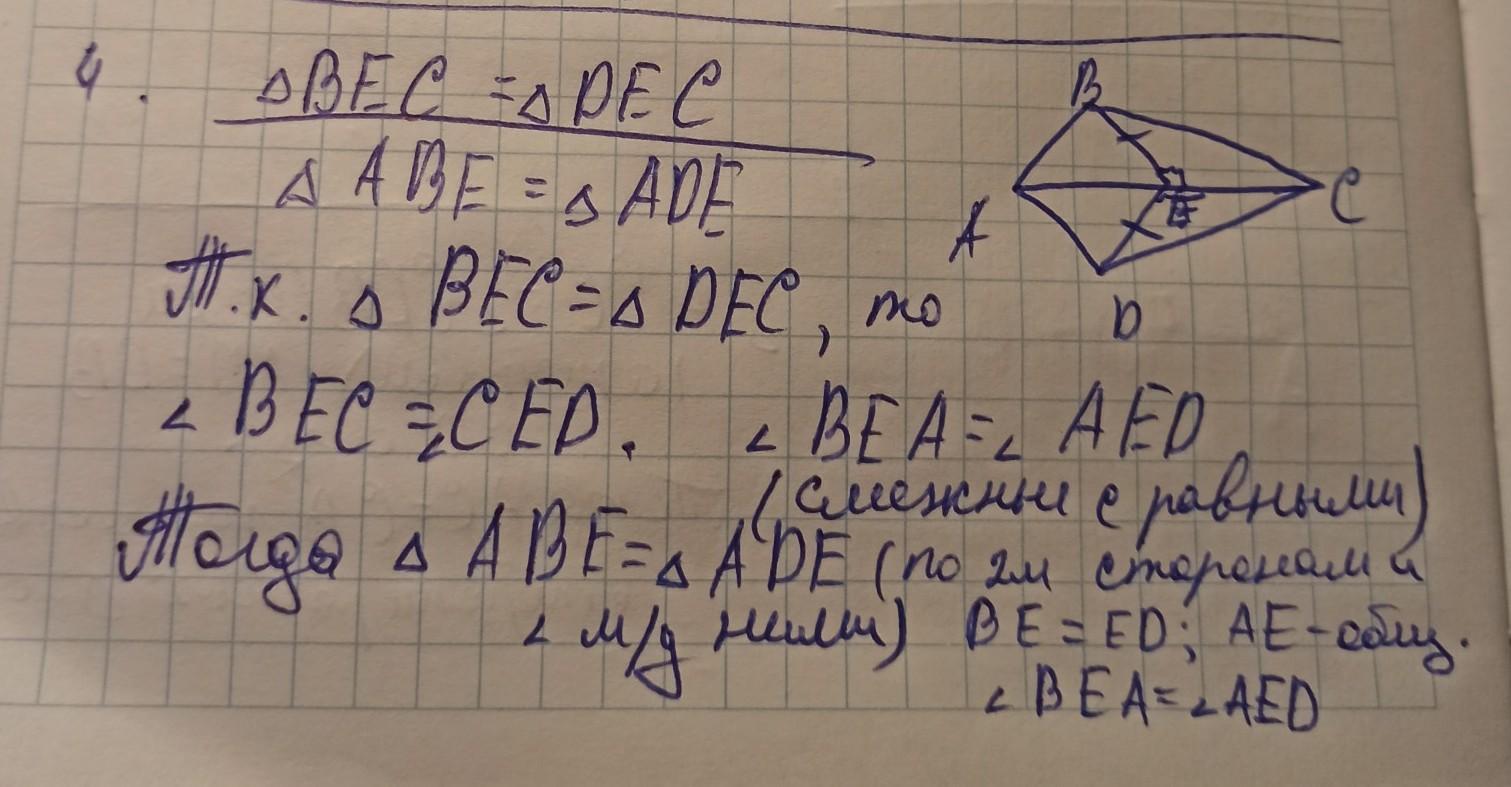 4. △BEC = △DEC
△ABE = △ADE
B
A
E
C
D
Т.к. △ BEC = △ DEC, то
∠ BEC = ∠CED. ∠ BEA = ∠ AED
(смежные с равными)
Тогда △ ABE = △ ADE (по 2м сторонам и
∠ м/д ними) BE = ED; AE - общ.
∠ BEA = ∠AED